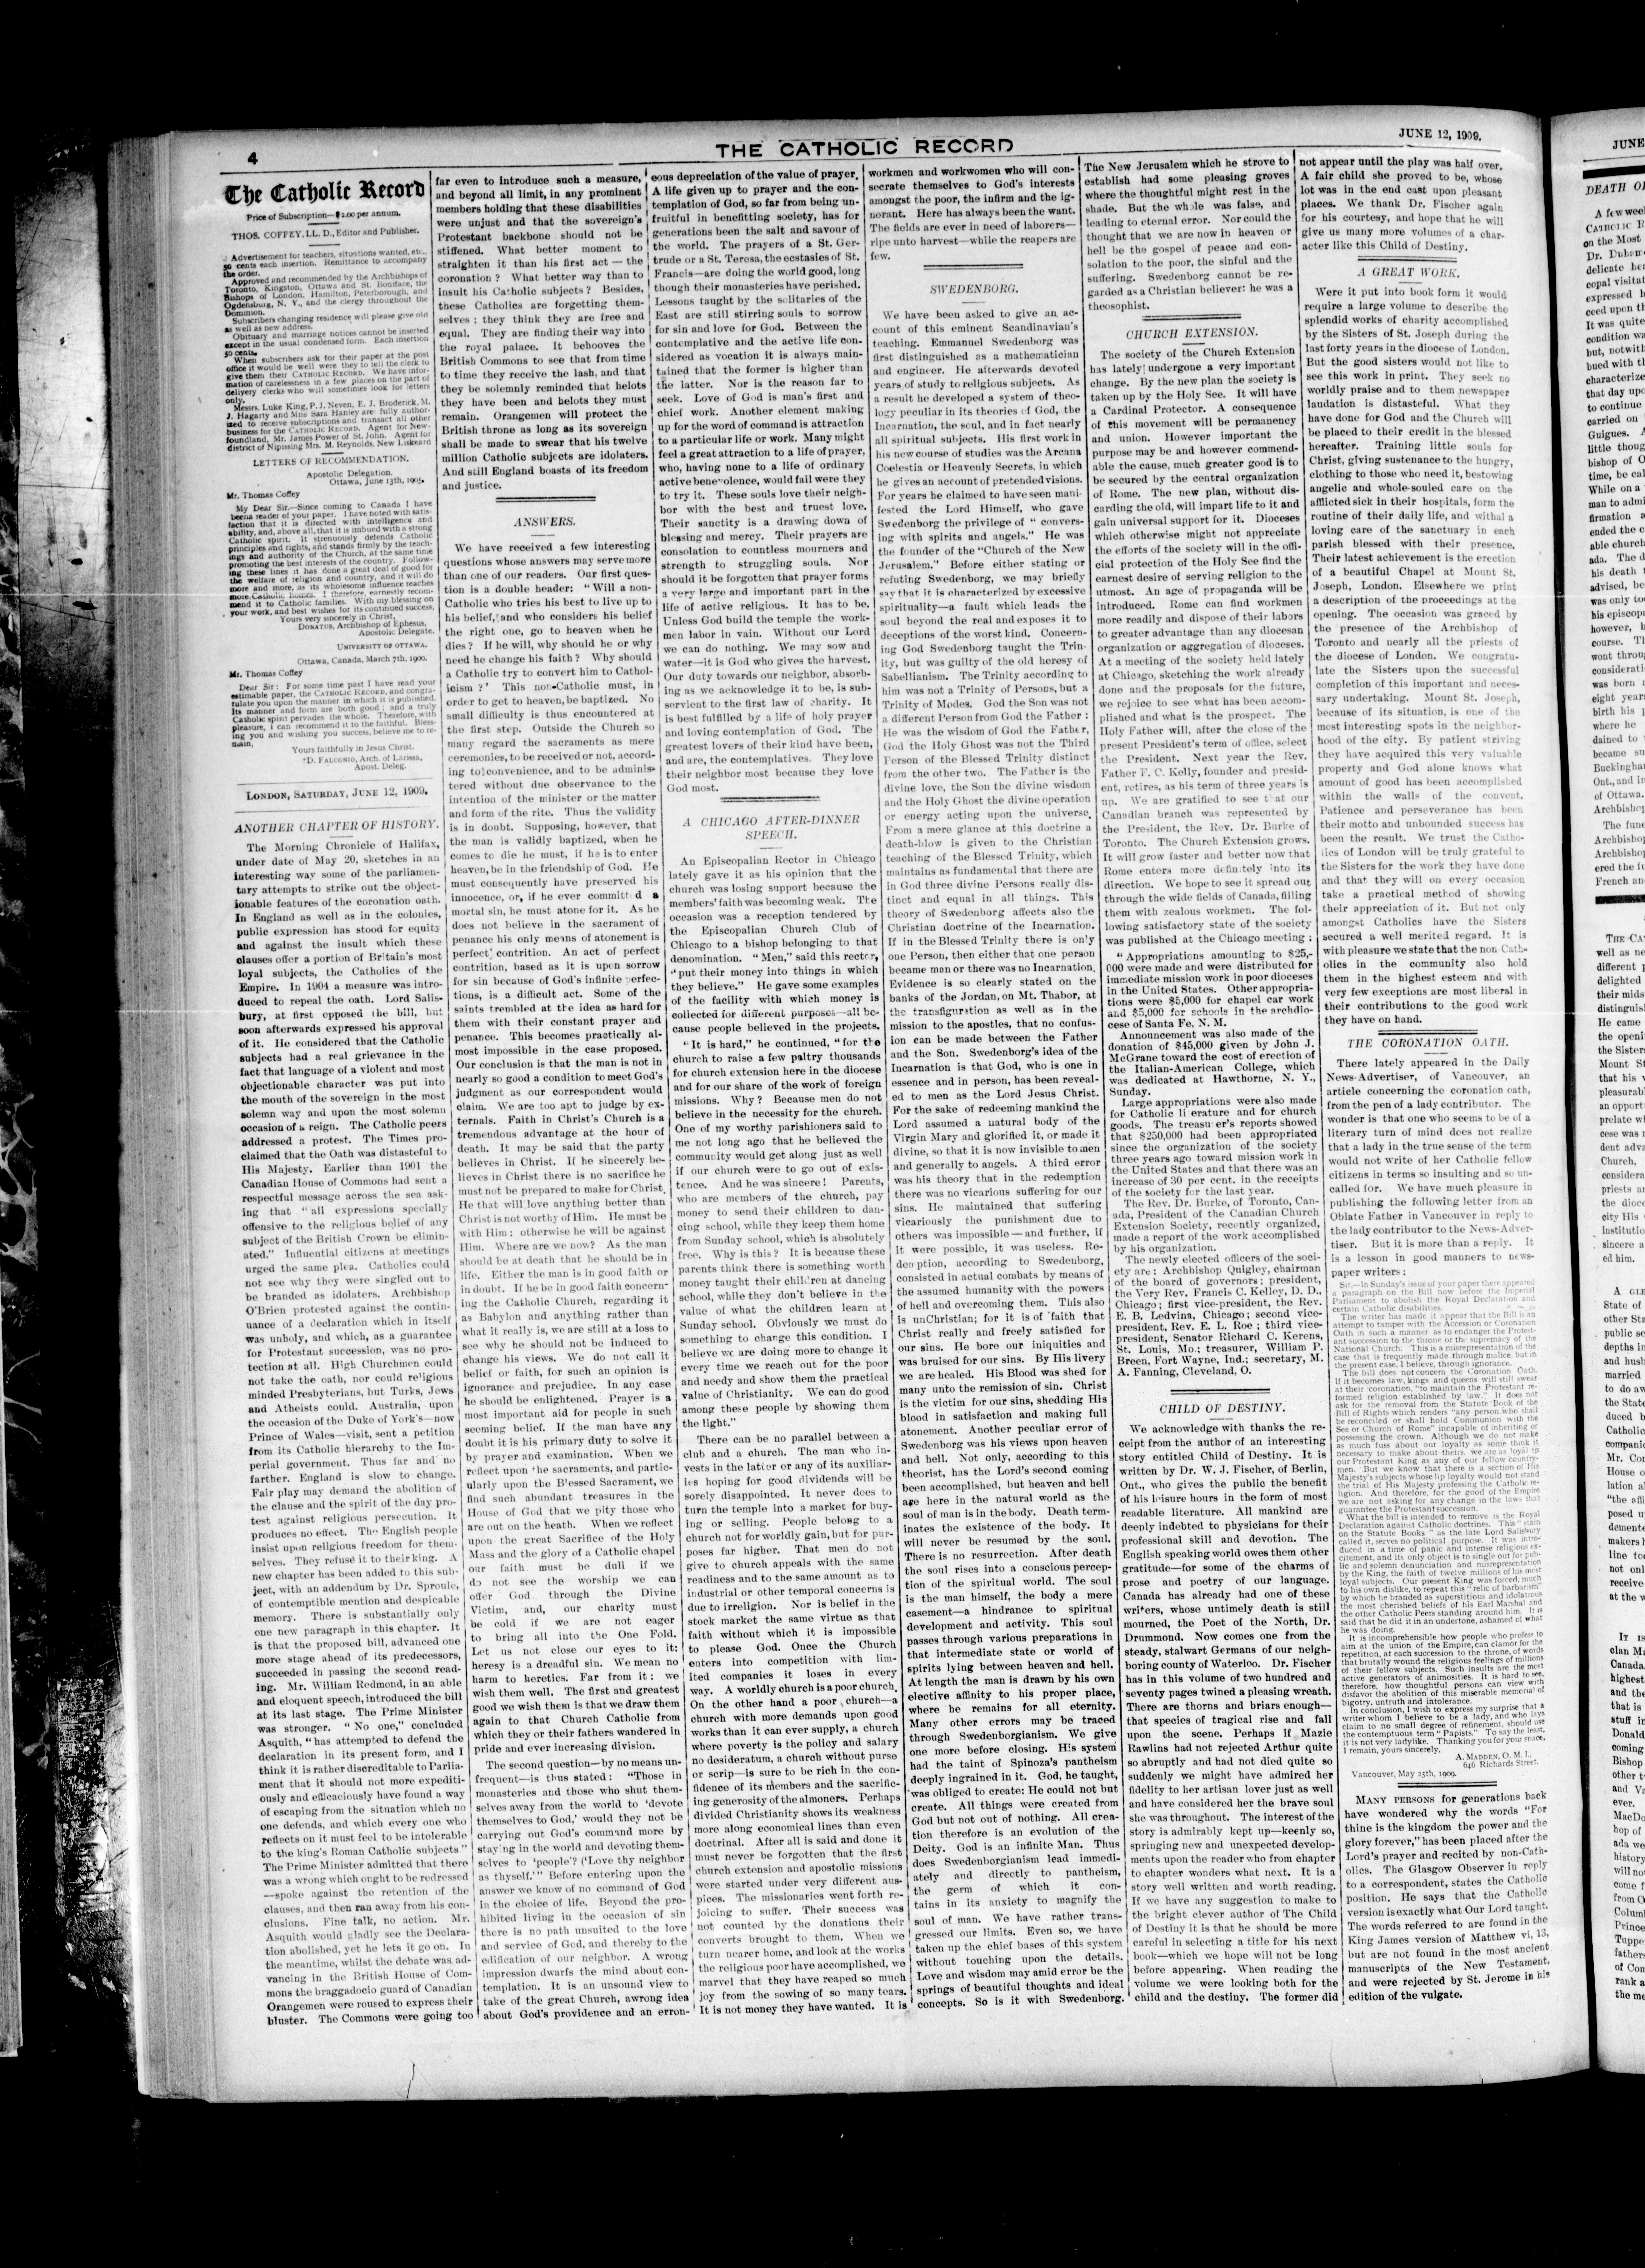 4
THE CATHOLIC RECORD
JUNE 12, 1909.
The Catholic Record
Price of Subscription—$2.00 per annum.
THOS. COFFEY, LL. D., Editor and Publisher.
Advertisement for teachers, situations wanted, etc.,
50 cents each insertion. Remittance to accompany
the order.
Approved and recommended by the Archbishops of
Toronto, Kingston, Ottawa and St. Boniface, the
Bishops of London, Hamilton, Peterborough, and
Ogdensburg, N. Y., and the clergy throughout the
Dominion.
Subscribers changing residence will please give old
as well as new address.
Obituary and marriage notices cannot be inserted
except in the usual condensed form. Each insertion
50 cents.
When subscribers ask for their paper at the post
office it would be well were they to tell the clerk to
give them their CATHOLIC RECORD. We have infor-
mation of carelessness in a few places on the part of
delivery clerks who will sometimes look for letters
only.
Messrs. Luke King, P. J. Neven, E. J. Broderick, M.
J. Hagarty and Miss Sara Hanley are fully author-
ized to receive subscriptions and transact all other
business for the CATHOLIC RECORD. Agent for New-
foundland, Mr. James Power of St. John. Agent for
district of Nipissing Mrs. M. Reynolds, New Liskeard
LETTERS OF RECOMMENDATION.
Apostolic Delegation.
Ottawa, June 13th, 1905.
Mr. Thomas Coffey
My Dear Sir—Since coming to Canada I have
been a reader of your paper. I have noted with satis-
faction that it is directed with intelligence and
ability, and, above all, that it is imbued with a strong
Catholic spirit. It strenuously defends Catholic
principles and rights, and stands firmly by the teach-
ings and authority of the Church, at the same time
promoting the best interests of the country. Follow-
ing these lines it has done a great deal of good for
the welfare of religion and country, and it will do
more and more, as its wholesome influence reaches
more Catholic homes. I therefore, earnestly recom-
mend it to Catholic families. With my blessing on
your work, and best wishes for its continued success,
Yours very sincerely in Christ,
DONATUS, Archbishop of Ephesus,
Apostolic Delegate.
UNIVERSITY OF OTTAWA.
Ottawa, Canada, March 7th, 1900.
Mr. Thomas Coffey
Dear Sir: For some time past I have read your
estimable paper, the CATHOLIC RECORD, and congra-
tulate you upon the manner in which it is published.
Its manner and form are both good; and a truly
Catholic spirit pervades the whole. Therefore, with
pleasure, I can recommend it to the faithful. Bless-
ing you and wishing you success, believe me to re-
main,
Yours faithfully in Jesus Christ.
†D. FALCONIO, Arch. of Larissa,
Apost. Deleg.
LONDON, SATURDAY, JUNE 12, 1909.
ANOTHER CHAPTER OF HISTORY.
The Morning Chronicle of Halifax,
under date of May 20, sketches in an
interesting way some of the parliamen-
tary attempts to strike out the object-
ionable features of the coronation oath.
In England as well as in the colonies,
public expression has stood for equity
and against the insult which these
clauses offer a portion of Britain's most
loyal subjects, the Catholics of the
Empire. In 1904 a measure was intro-
duced to repeal the oath. Lord Salis-
bury, at first opposed the bill, but
soon afterwards expressed his approval
of it. He considered that the Catholic
subjects had a real grievance in the
fact that language of a violent and most
objectionable character was put into
the mouth of the sovereign in the most
solemn way and upon the most solemn
occasion of a reign. The Catholic peers
addressed a protest. The Times pro-
claimed that the Oath was distasteful to
His Majesty. Earlier than 1901 the
Canadian House of Commons had sent a
respectful message across the sea ask-
ing that "all expressions specially
offensive to the religious belief of any
subject of the British Crown be elimin-
ated." Influential citizens at meetings
urged the same plea. Catholics could
not see why they were singled out to
be branded as idolaters. Archbishop
O'Brien protested against the contin-
uance of a declaration which in itself
was unholy, and which, as a guarantee
for Protestant succession, was no pro-
tection at all. High Churchmen could
not take the oath, nor could religious
minded Presbyterians, but Turks, Jews
and Atheists could. Australia, upon
the occasion of the Duke of York's—now
Prince of Wales—visit, sent a petition
from its Catholic hierarchy to the Im-
perial government. Thus far and no
farther. England is slow to change.
Fair play may demand the abolition of
the clause and the spirit of the day pro-
test against religious persecution. It
produces no effect. The English people
insist upon religious freedom for them-
selves. They refuse it to their king. A
new chapter has been added to this sub-
ject, with an addendum by Dr. Sproule,
of contemptible mention and despicable
memory. There is substantially only
one new paragraph in this chapter. It
is that the proposed bill, advanced one
more stage ahead of its predecessors,
succeeded in passing the second read-
ing. Mr. William Redmond, in an able
and eloquent speech, introduced the bill
at its last stage. The Prime Minister
was stronger. "No one," concluded
Asquith, "has attempted to defend the
declaration in its present form, and I
think it is rather discreditable to Parlia-
ment that it should not more expediti-
ously and efficaciously have found a way
of escaping from the situation which no
one defends, and which every one who
reflects on it must feel to be intolerable
to the king's Roman Catholic subjects."
The Prime Minister admitted that there
was a wrong which ought to be redressed
—spoke against the retention of the
clauses, and then ran away from his con-
clusions. Fine talk, no action. Mr.
Asquith would gladly see the Declara-
tion abolished, yet he lets it go on. In
the meantime, whilst the debate was ad-
vancing in the British House of Com-
mons the braggadocio guard of Canadian
Orangemen were roused to express their
bluster. The Commons were going too
far even to introduce such a measure,
and beyond all limit, in any prominent
members holding that these disabilities
were unjust and that the sovereign's
Protestant backbone should not be
stiffened. What better moment to
straighten it than his first act — the
coronation? What better way than to
insult his Catholic subjects? Besides,
these Catholics are forgetting them-
selves: they think they are free and
equal. They are finding their way into
the royal palace. It behooves the
British Commons to see that from time
to time they receive the lash, and that
they be solemnly reminded that helots
they have been and helots they must
remain. Orangemen will protect the
British throne as long as its sovereign
shall be made to swear that his twelve
million Catholic subjects are idolaters.
And still England boasts of its freedom
and justice.
ANSWERS.
We have received a few interesting
questions whose answers may serve more
than one of our readers. Our first ques-
tion is a double header: "Will a non-
Catholic who tries his best to live up to
his belief, and who considers his belief
the right one, go to heaven when he
dies? If he will, why should he or why
need he change his faith? Why should
a Catholic try to convert him to Cathol-
icism?' This non-Catholic must, in
order to get to heaven, be baptized. No
small difficulty is thus encountered at
the first step. Outside the Church so
many regard the sacraments as mere
ceremonies, to be received or not, accord-
ing to convenience, and to be adminis-
tered without due observance to the
intention of the minister or the matter
and form of the rite. Thus the validity
is in doubt. Supposing, however, that
the man is validly baptized, when he
comes to die he must, if he is to enter
heaven, be in the friendship of God. He
must consequently have preserved his
innocence, or, if he ever committ d a
mortal sin, he must atone for it. As he
does not believe in the sacrament of
penance his only means of atonement is
perfect contrition. An act of perfect
contrition, based as it is upon sorrow
for sin because of God's infinite perfec-
tions, is a difficult act. Some of the
saints trembled at the idea as hard for
them with their constant prayer and
penance. This becomes practically al-
most impossible in the case proposed.
Our conclusion is that the man is not in
nearly so good a condition to meet God's
judgment as our correspondent would
claim. We are too apt to judge by ex-
ternals. Faith in Christ's Church is a
tremendous advantage at the hour of
death. It may be said that the party
believes in Christ. If he sincerely be-
lieves in Christ there is no sacrifice he
must not be prepared to make for Christ.
He that will love anything better than
Christ is not worthy of Him. He must be
with Him: otherwise he will be against
Him. Where are we now? As the man
should be at death that he should be in
life. Either the man is in good faith or
in doubt. If he be in good faith concern-
ing the Catholic Church, regarding it
as Babylon and anything rather than
what it really is, we are still at a loss to
see why he should not be induced to
change his views. We do not call it
belief or faith, for such an opinion is
ignorance and prejudice. In any case
he should be enlightened. Prayer is a
most important aid for people in such
seeming belief. If the man have any
doubt it is his primary duty to solve it
by prayer and examination. When we
reflect upon the sacraments, and partic-
ularly upon the Blessed Sacrament, we
find such abundant treasures in the
House of God that we pity those who
are out on the heath. When we reflect
upon the great Sacrifice of the Holy
Mass and the glory of a Catholic chapel
our faith must be dull if we
do not see the worship we can
offer God through the Divine
Victim, and, our charity must
be cold if we are not eager
to bring all into the One Fold.
Let us not close our eyes to it:
heresy is a dreadful sin. We mean no
harm to heretics. Far from it: we
wish them well. The first and greatest
good we wish them is that we draw them
again to that Church Catholic from
which they or their fathers wandered in
pride and ever increasing division.
The second question—by no means un-
frequent—is thus stated: "Those in
monasteries and those who shut them-
selves away from the world to 'devote
themselves to God,' would they not be
carrying out God's command more by
staying in the world and devoting them-
selves to 'people'? ('Love thy neighbor
as thyself.'" Before entering upon the
answer we know of no command of God
in the choice of life. Beyond the pro-
hibited living in the occasion of sin
there is no path unsuited to the love
and service of God, and thereby to the
edification of our neighbor. A wrong
impression dwarfs the mind about con-
templation. It is an unsound view to
take of the great Church, a wrong idea
about God's providence and an erron-
eous depreciation of the value of prayer.
A life given up to prayer and the con-
templation of God, so far from being un-
fruitful in benefitting society, has for
generations been the salt and savour of
the world. The prayers of a St. Ger-
trude or a St. Teresa, the ecstasies of St.
Francis—are doing the world good, long
though their monasteries have perished.
Lessons taught by the solitaries of the
East are still stirring souls to sorrow
for sin and love for God. Between the
contemplative and the active life con-
sidered as vocation it is always main-
tained that the former is higher than
the latter. Nor is the reason far to
seek. Love of God is man's first and
chief work. Another element making
up for the word of command is attraction
to a particular life or work. Many might
feel a great attraction to a life of prayer,
who, having none to a life of ordinary
active benevolence, would fail were they
to try it. These souls love their neigh-
bor with the best and truest love.
Their sanctity is a drawing down of
blessing and mercy. Their prayers are
consolation to countless mourners and
strength to struggling souls. Nor
should it be forgotten that prayer forms
a very large and important part in the
life of active religious. It has to be.
Unless God build the temple the work-
men labor in vain. Without our Lord
we can do nothing. We may sow and
water—it is God who gives the harvest.
Our duty towards our neighbor, absorb-
ing as we acknowledge it to be, is sub-
servient to the first law of charity. It
is best fulfilled by a life of holy prayer
and loving contemplation of God. The
greatest lovers of their kind have been,
and are, the contemplatives. They love
their neighbor most because they love
God most.
A CHICAGO AFTER-DINNER
SPEECH.
An Episcopalian Rector in Chicago
lately gave it as his opinion that the
church was losing support because the
members' faith was becoming weak. The
occasion was a reception tendered by
the Episcopalian Church Club of
Chicago to a bishop belonging to that
denomination. "Men," said this rector,
"put their money into things in which
they believe." He gave some examples
of the facility with which money is
collected for different purposes—all be-
cause people believed in the projects.
"It is hard," he continued, "for the
church to raise a few paltry thousands
for church extension here in the diocese
and for our share of the work of foreign
missions. Why? Because men do not
believe in the necessity for the church.
One of my worthy parishioners said to
me not long ago that he believed the
community would get along just as well
if our church were to go out of exis-
tence. And he was sincere! Parents,
who are members of the church, pay
money to send their children to dan-
cing school, while they keep them home
from Sunday school, which is absolutely
free. Why is this? It is because these
parents think there is something worth
money taught their children at dancing
school, while they don't believe in the
value of what the children learn at
Sunday school. Obviously we must do
something to change this condition. I
believe we are doing more to change it
every time we reach out for the poor
and needy and show them the practical
value of Christianity. We can do good
among these people by showing them
the light."
There can be no parallel between a
club and a church. The man who in-
vests in the latter or any of its auxiliar-
ies hoping for good dividends will be
sorely disappointed. It never does to
turn the temple into a market for buy-
ing or selling. People belong to a
church not for worldly gain, but for pur-
poses far higher. That men do not
give to church appeals with the same
readiness and to the same amount as to
industrial or other temporal concerns is
due to irreligion. Nor is belief in the
stock market the same virtue as that
faith without which it is impossible
to please God. Once the Church
enters into competition with lim-
ited companies it loses in every
way. A worldly church is a poor church.
On the other hand a poor church—a
church with more demands upon good
works than it can ever supply, a church
where poverty is the policy and salary
no desideratum, a church without purse
or scrip—is sure to be rich in the con-
fidence of its members and the sacrific-
ing generosity of the almoners. Perhaps
divided Christianity shows its weakness
more along economical lines than even
doctrinal. After all is said and done it
must never be forgotten that the first
church extension and apostolic missions
were started under very different aus-
pices. The missionaries went forth re-
joicing to suffer. Their success was
not counted by the donations their
converts brought to them. When we
turn nearer home, and look at the works
the religious poor have accomplished, we
marvel that they have reaped so much
joy from the sowing of so many tears.
It is not money they have wanted. It is
workmen and workwomen who will con-
secrate themselves to God's interests
amongst the poor, the infirm and the ig-
norant. Here has always been the want.
The fields are ever in need of laborers—
ripe unto harvest—while the reapers are
few.
SWEDENBORG.
We have been asked to give an ac-
count of this eminent Scandinavian's
teaching. Emmanuel Swedenborg was
first distinguished as a mathematician
and engineer. He afterwards devoted
years of study to religious subjects. As
a result he developed a system of theo-
logy peculiar in its theories of God, the
Incarnation, the soul, and in fact nearly
all spiritual subjects. His first work in
his new course of studies was the Arcana
Coelestia or Heavenly Secrets, in which
he gives an account of pretended visions.
For years he claimed to have seen mani-
fested the Lord Himself, who gave
Swedenborg the privilege of "convers-
ing with spirits and angels." He was
the founder of the "Church of the New
Jerusalem." Before either stating or
refuting Swedenborg, we may briefly
say that it is characterized by excessive
spirituality—a fault which leads the
soul beyond the real and exposes it to
deceptions of the worst kind. Concern-
ing God Swedenborg taught the Trin-
ity, but was guilty of the old heresy of
Sabellianism. The Trinity according to
him was not a Trinity of Persons, but a
Trinity of Modes. God the Son was not
a different Person from God the Father:
He was the wisdom of God the Father,
God the Holy Ghost was not the Third
Person of the Blessed Trinity distinct
from the other two. The Father is the
divine love, the Son the divine wisdom
and the Holy Ghost the divine operation
or energy acting upon the universe.
From a mere glance at this doctrine a
death-blow is given to the Christian
teaching of the Blessed Trinity, which
maintains as fundamental that there are
in God three divine Persons really dis-
tinct and equal in all things. This
theory of Swedenborg affects also the
Christian doctrine of the Incarnation.
If in the Blessed Trinity there is only
one Person, then either that one person
became man or there was no Incarnation.
Evidence is so clearly stated on the
banks of the Jordan, on Mt. Thabor, at
the transfiguration as well as in the
mission to the apostles, that no confus-
ion can be made between the Father
and the Son. Swedenborg's idea of the
Incarnation is that God, who is one in
essence and in person, has been reveal-
ed to men as the Lord Jesus Christ.
For the sake of redeeming mankind the
Lord assumed a natural body of the
Virgin Mary and glorified it, or made it
divine, so that it is now invisible to men
and generally to angels. A third error
was his theory that in the redemption
there was no vicarious suffering for our
sins. He maintained that suffering
vicariously the punishment due to
others was impossible — and further, if
it were possible, it was useless. Re-
demption, according to Swedenborg,
consisted in actual combats by means of
the assumed humanity with the powers
of hell and overcoming them. This also
is unChristian; for it is of faith that
Christ really and freely satisfied for
our sins. He bore our iniquities and
was bruised for our sins. By His livery
we are healed. His Blood was shed for
many unto the remission of sin. Christ
is the victim for our sins, shedding His
blood in satisfaction and making full
atonement. Another peculiar error of
Swedenborg was his views upon heaven
and hell. Not only, according to this
theorist, has the Lord's second coming
been accomplished, but heaven and hell
are here in the natural world as the
soul of man is in the body. Death term-
inates the existence of the body. It
will never be resumed by the soul.
There is no resurrection. After death
the soul rises into a conscious percep-
tion of the spiritual world. The soul
is the man himself, the body a mere
casement—a hindrance to spiritual
development and activity. This soul
passes through various preparations in
that intermediate state or world of
spirits lying between heaven and hell.
At length the man is drawn by his own
elective affinity to his proper place,
where he remains for all eternity.
Many other errors may be traced
through Swedenborgianism. We give
one more before closing. His system
had the taint of Spinoza's pantheism
deeply ingrained in it. God, he taught,
was obliged to create: He could not but
create. All things were created from
God but not out of nothing. All crea-
tion therefore is an evolution of the
Deity. God is an infinite Man. Thus
does Swedenborgianism lead immedi-
ately and directly to pantheism,
the germ of which it con-
tains in its anxiety to magnify the
soul of man. We have rather trans-
gressed our limits. Even so, we have
taken up the chief bases of this system
without touching upon the details.
Love and wisdom may amid error be the
springs of beautiful thoughts and ideal
concepts. So is it with Swedenborg.
The New Jerusalem which he strove to
establish had some pleasing groves
where the thoughtful might rest in the
shade. But the whole was false, and
leading to eternal error. Nor could the
thought that we are now in heaven or
hell be the gospel of peace and con-
solation to the poor, the sinful and the
suffering. Swedenborg cannot be re-
garded as a Christian believer: he was a
theosophist.
CHURCH EXTENSION.
The society of the Church Extension
has lately undergone a very important
change. By the new plan the society is
taken up by the Holy See. It will have
a Cardinal Protector. A consequence
of this movement will be permanency
and union. However important the
purpose may be and however commend-
able the cause, much greater good is to
be secured by the central organization
of Rome. The new plan, without dis-
carding the old, will impart life to it and
gain universal support for it. Dioceses
which otherwise might not appreciate
the efforts of the society will in the offi-
cial protection of the Holy See find the
earnest desire of serving religion to the
utmost. An age of propaganda will be
introduced. Rome can find workmen
more readily and dispose of their labors
to greater advantage than any diocesan
organization or aggregation of dioceses.
At a meeting of the society held lately
at Chicago, sketching the work already
done and the proposals for the future,
we rejoice to see what has been accom-
plished and what is the prospect. The
Holy Father will, after the close of the
present President's term of office, select
the President. Next year the Rev.
Father F. C. Kelly, founder and presid-
ent, retires, as his term of three years is
up. We are gratified to see that our
Canadian branch was represented by
the President, the Rev. Dr. Burke of
Toronto. The Church Extension grows.
It will grow faster and better now that
Rome enters more definitely into its
direction. We hope to see it spread out
through the wide fields of Canada, filling
them with zealous workmen. The fol-
lowing satisfactory state of the society
was published at the Chicago meeting:
"Appropriations amounting to $25,-
000 were made and were distributed for
immediate mission work in poor dioceses
in the United States. Other appropria-
tions were $5,000 for chapel car work
and $5,000 for schools in the archdio-
cese of Santa Fe, N. M.
Announcement was also made of the
donation of $45,000 given by John J.
McGrane toward the cost of erection of
the Italian-American College, which
was dedicated at Hawthorne, N. Y.,
Sunday.
Large appropriations were also made
for Catholic li erature and for church
goods. The treasu er's reports showed
that $250,000 had been appropriated
since the organization of the society
three years ago toward mission work in
the United States and that there was an
increase of 30 per cent. in the receipts
of the society for the last year.
The Rev. Dr. Burke, of Toronto, Can-
ada, President of the Canadian Church
Extension Society, recently organized,
made a report of the work accomplished
by his organization.
The newly elected officers of the soci-
ety are: Archbishop Quigley, chairman
of the board of governors; president,
the Very Rev. Francis C. Kelley, D. D.,
Chicago; first vice-president, the Rev.
E. B. Ledvina, Chicago; second vice-
president, Rev. E. L. Roe; third vice-
president, Senator Richard C. Kerens,
St. Louis, Mo.; treasurer, William P.
Breen, Fort Wayne, Ind.; secretary, M.
A. Fanning, Cleveland, O.
CHILD OF DESTINY.
We acknowledge with thanks the re-
ceipt from the author of an interesting
story entitled Child of Destiny. It is
written by Dr. W. J. Fischer, of Berlin,
Ont., who gives the public the benefit
of his leisure hours in the form of most
readable literature. All mankind are
deeply indebted to physicians for their
professional skill and devotion. The
English speaking world owes them other
gratitude—for some of the charms of
prose and poetry of our language.
Canada has already had one of these
writers, whose untimely death is still
mourned, the Poet of the North, Dr.
Drummond. Now comes one from the
steady, stalwart Germans of our neigh-
boring county of Waterloo. Dr. Fischer
has in this volume of two hundred and
seventy pages twined a pleasing wreath.
There are thorns and briars enough—
that species of tragical rise and fall
upon the scene. Perhaps if Mazie
Rawlins had not rejected Arthur quite
so abruptly and had not died quite so
suddenly we might have admired her
fidelity to her artisan lover just as well
and have considered her the brave soul
she was throughout. The interest of the
story is admirably kept up—keenly so,
springing new and unexpected develop-
ments upon the reader who from chapter
to chapter wonders what next. It is a
story well written and worth reading.
If we have any suggestion to make to
the bright clever author of The Child
of Destiny it is that he should be more
careful in selecting a title for his next
book—which we hope will not be long
before appearing. When reading the
volume we were looking both for the
child and the destiny. The former did
not appear until the play was half over.
A fair child she proved to be, whose
lot was in the end cast upon pleasant
places. We thank Dr. Fischer again
for his courtesy, and hope that he will
give us many more volumes of a char-
acter like this Child of Destiny.
A GREAT WORK.
Were it put into book form it would
require a large volume to describe the
splendid works of charity accomplished
by the Sisters of St. Joseph during the
last forty years in the diocese of London.
But the good sisters would not like to
see this work in print. They seek no
worldly praise and to them newspaper
laudation is distasteful. What they
have done for God and the Church will
be placed to their credit in the blessed
hereafter. Training little souls for
Christ, giving sustenance to the hungry,
clothing to those who need it, bestowing
angelic and whole-souled care on the
afflicted sick in their hospitals, form the
routine of their daily life, and withal a
loving care of the sanctuary in each
parish blessed with their presence.
Their latest achievement is the erection
of a beautiful Chapel at Mount St.
Joseph, London. Elsewhere we print
a description of the proceedings at the
opening. The occasion was graced by
the presence of the Archbishop of
Toronto and nearly all the priests of
the diocese of London. We congratu-
late the Sisters upon the successful
completion of this important and neces-
sary undertaking. Mount St. Joseph,
because of its situation, is one of the
most interesting spots in the neighbor-
hood of the city. By patient striving
they have acquired this very valuable
property and God alone knows what
amount of good has been accomplished
within the walls of the convent.
Patience and perseverance has been
their motto and unbounded success has
been the result. We trust the Catho-
lics of London will be truly grateful to
the Sisters for the work they have done
and that they will on every occasion
take a practical method of showing
their appreciation of it. But not only
amongst Catholics have the Sisters
secured a well merited regard. It is
with pleasure we state that the non Cath-
olics in the community also hold
them in the highest esteem and with
very few exceptions are most liberal in
their contributions to the good work
they have on hand.
THE CORONATION OATH.
There lately appeared in the Daily
News-Advertiser, of Vancouver, an
article concerning the coronation oath,
from the pen of a lady contributor. The
wonder is that one who seems to be of a
literary turn of mind does not realize
that a lady in the true sense of the term
would not write of her Catholic fellow
citizens in terms so insulting and so un-
called for. We have much pleasure in
publishing the following letter from an
Oblate Father in Vancouver in reply to
the lady contributor to the News-Adver-
tiser. But it is more than a reply. It
is a lesson in good manners to news-
paper writers:
Sir,—In Sunday's issue of your paper there appeared
a paragraph on the Bill now before the Imperial
Parliament to abolish the Royal Declaration and
certain Catholic disabilities.
The writer has made it appear that the Bill is an
attempt to tamper with the Accession or Coronation
Oath in such a manner as to endanger the Protest-
ant succession to the throne or the supremacy of the
National Church. This is a misrepresentation of the
case that is frequently made through malice, but in
the present case, I believe, through ignorance.
The bill does not concern the Coronation Oath.
If it becomes law, kings and queens will still swear
at their coronation, "to maintain the Protestant re-
formed religion established by law." It does not
ask for the removal from the Statute Book of the
Bill of Rights which renders "any person who shall
be reconciled or shall hold Communion with the
See or Church of Rome" incapable of inheriting or
possessing the crown. Although we do not make
as much fuss about our loyalty as some think it
necessary to make about theirs, we are as loyal to
our Protestant King as any of our fellow country-
men. But we know that there is a section of His
Majesty's subjects whose lip loyalty would not stand
the trial of His Majesty professing the Catholic re-
ligion. And therefore, for the good of the Empire
we are not asking for any change in the laws that
guarantee the Protestant succession.
What the bill is intended to remove is the Royal
Declaration against Catholic doctrines. This "stain
on the Statute Books" as the late Lord Salisbury
called it, serves no political purpose. It was intro-
duced in a time of panic and intense religious ex-
citement, and its only object is to single out for pub-
lic and solemn denunciation and misrepresentation
by the King, the faith of twelve millions of his most
loyal subjects. Our present King was forced, much
to his own dislike, to repeat this "relic of barbarism"
by which he branded as superstitious and idolatrous
the most cherished beliefs of his Earl Marshal and
the other Catholic Peers standing around him. It is
said that he did it in an undertone, ashamed of what
he was doing.
It is incomprehensible how people who profess to
aim at the union of the Empire, can clamor for the
repetition, at each succession to the throne, of words
that brutally wound the religious feelings of millions
of their fellow subjects. Such insults are the most
active generators of animosities. It is hard to see,
therefore, how thoughtful persons can view with
disfavor the abolition of this miserable memorial of
bigotry, untruth and intolerance.
In conclusion, I wish to express my surprise that a
writer whom I believe to be a lady, and who lays
claim to no small degree of refinement, should use
the contemptuous term "Papists." To say the least,
it is not very ladylike. Thanking you for your space,
I remain, yours sincerely,
A. MADDEN, O. M. I.,
646 Richards Street.
Vancouver, May 25th, 1909.
MANY PERSONS for generations back
have wondered why the words "For
thine is the kingdom the power and the
glory forever," has been placed after the
Lord's prayer and recited by non-Cath-
olics. The Glasgow Observer in reply
to a correspondent, states the Catholic
position. He says that the Catholic
version is exactly what Our Lord taught.
The words referred to are found in the
King James version of Matthew vi, 13,
but are not found in the most ancient
manuscripts of the New Testament,
and were rejected by St. Jerome in his
edition of the vulgate.
JUNE
DEATH O